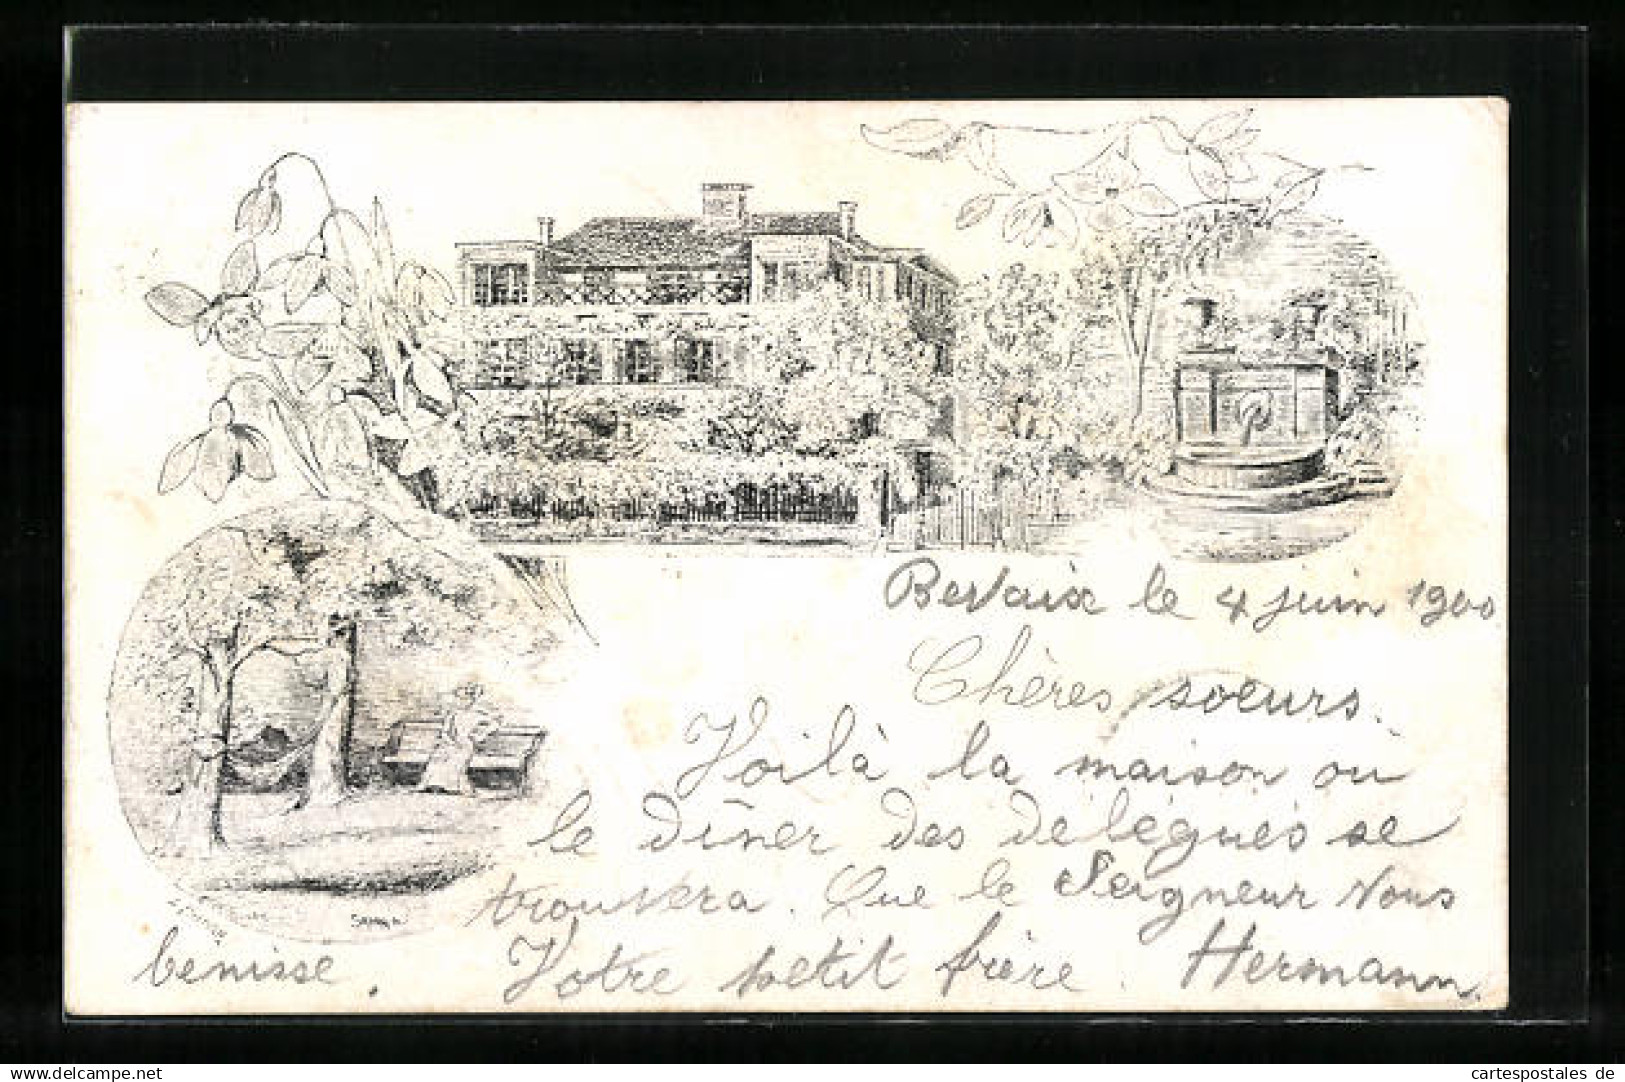 Bevaix le 4 juin 1900
Chères soeurs.
Voilà la maison où
le dîner des délégués se
trouvera. Que le Seigneur vous
bénisse. Votre petit frère. Hermann.
delcampe.net
cartespostales de